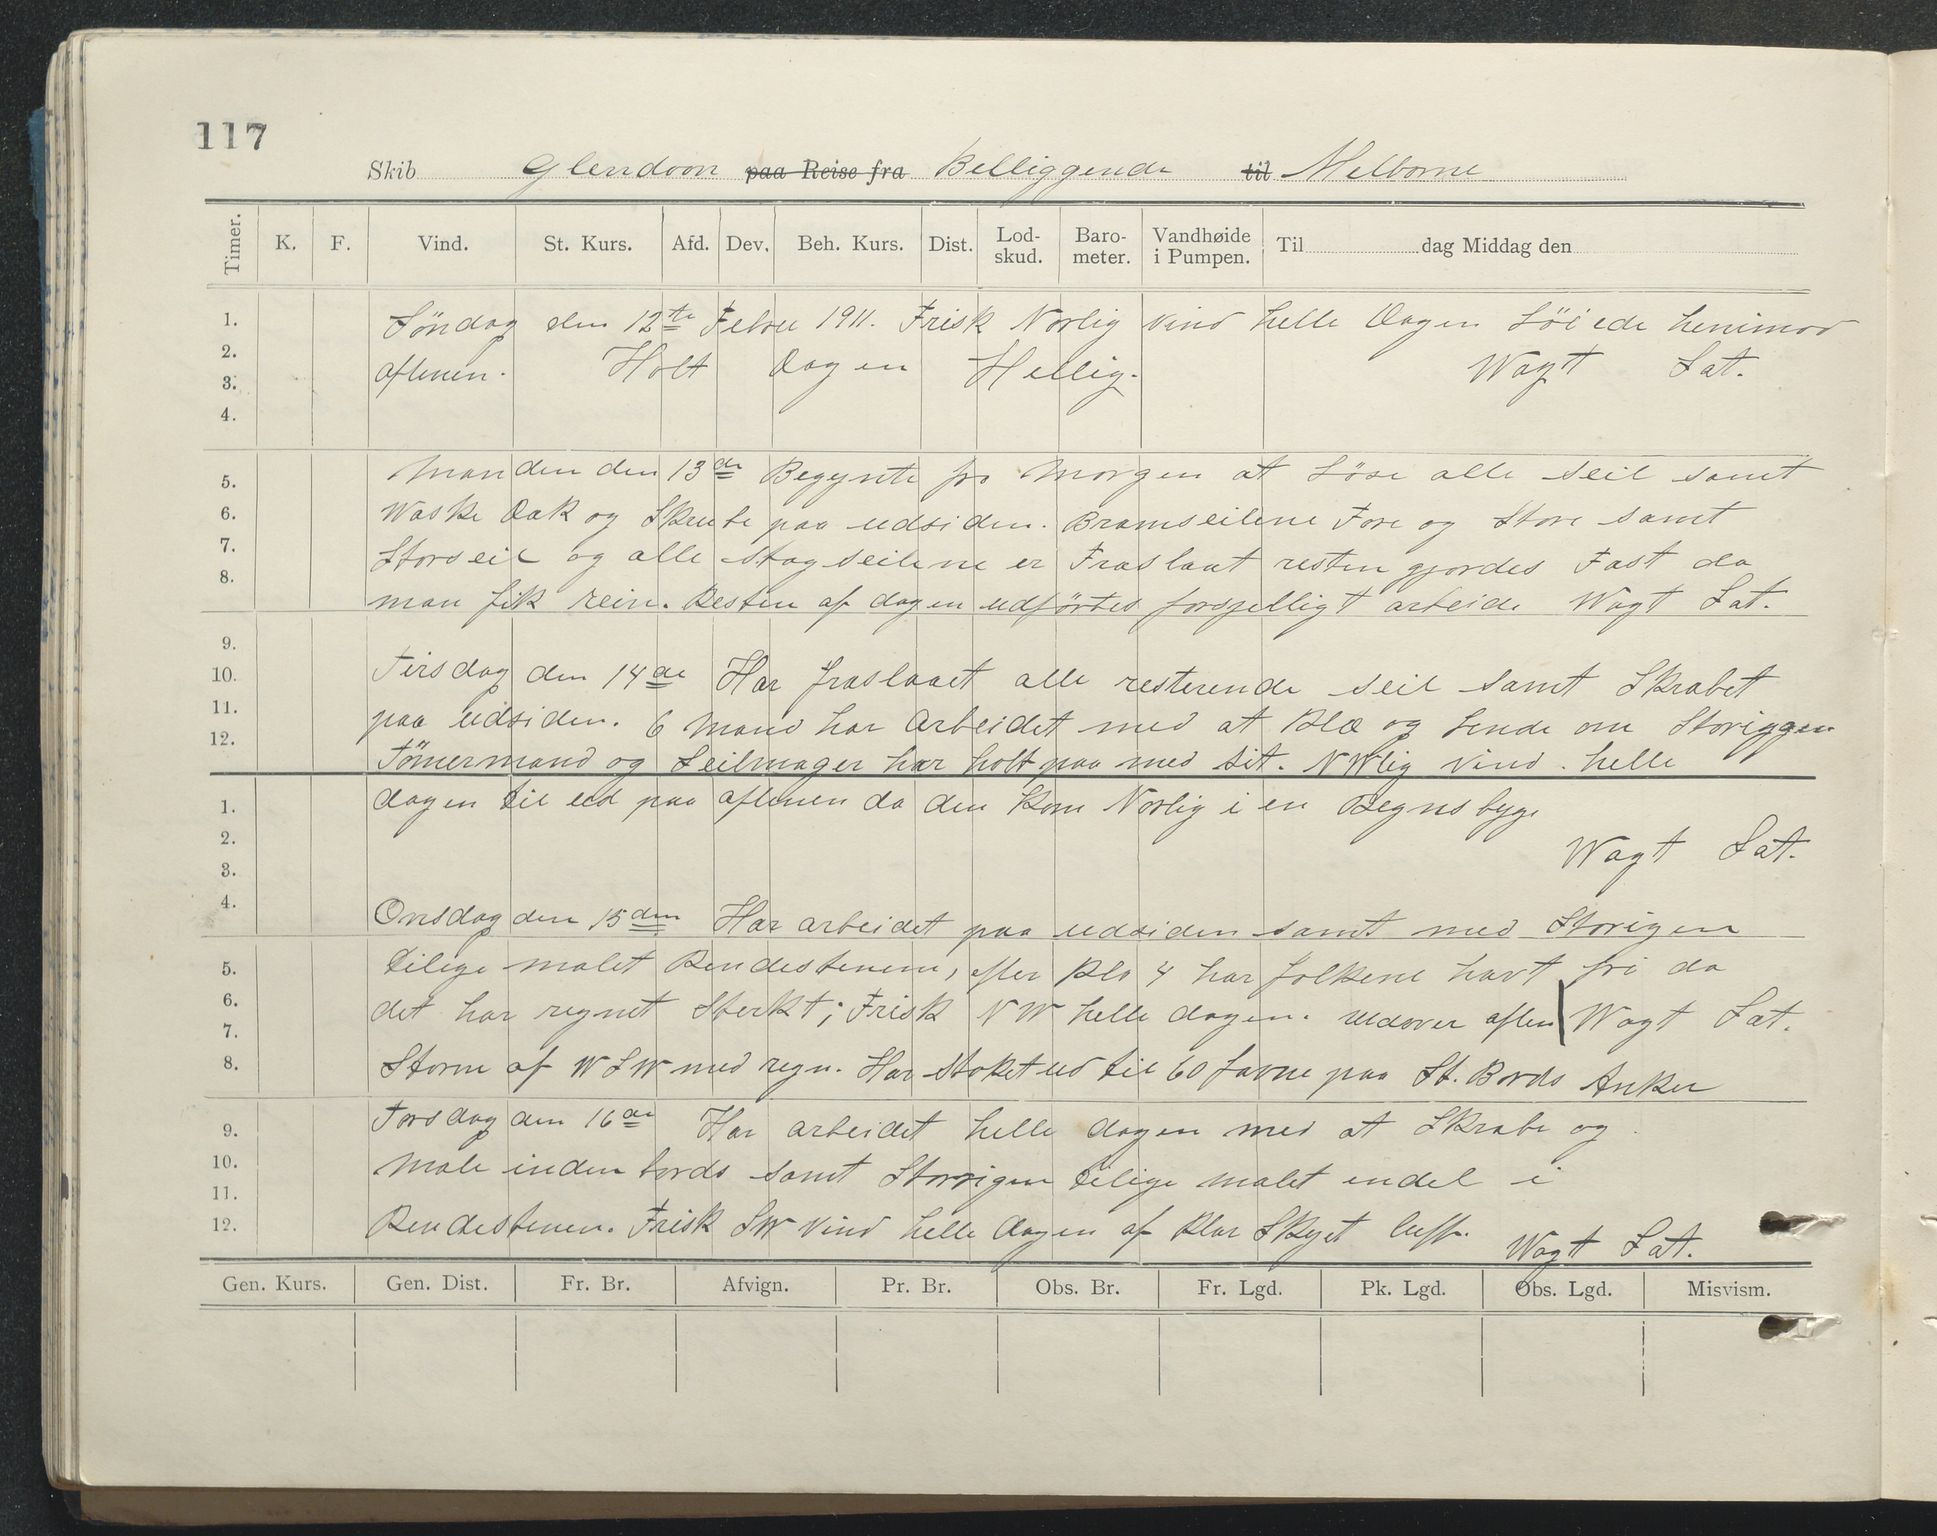 117
Skib Glendoon paa Reise fra Belliggende til Melborne
Timer. K. F. Vind. St. Kurs. Afd. Dev. Beh. Kurs. Dist. Lod-skud. Baro-meter. Vandhøide i Pumpen. Til dag Middag den
1. Söndag den 12te Febru 1911. Frisk Norlig vind helle Dagen Löiede henimod
2. aftenen. Holt Dagen Hellig. Wagt Sat.
3.
4.
5. Manden den 13de Begynte fra Morgen at Löse alle Seil samt
6. Waske Dæk og Skeube paa udsiden. Bramseilene Fore og Store samt
7. Storseil og alle Stagseilene er Fraslaat resten gjordes Fast da
8. man fik rein. Resten af dagen udförtes forsjelligt arbeide Wagt Sat.
9.
10. Tirsdag den 14de Har fraslaaet alle resterende seil samt Skrabet
11. paa udsiden. 6 Mand har Arbeidet med at Klæ og Sende om Storiggen
12. Tömermand og Seilmager har holt paa med sit. NWlig vind helle
1. dagen til ud paa aftenen da den kom Norlig i en Regnsbyge
2. Wagt Sat.
3.
4. Onsdag den 15den Har arbeidet paa udsiden samt med Storigen
5. tilige malet Rendestenene, efter Klo 4 har folkene havt fri da
6. det har regnet Sterkt; Frisk NW helle dagen. udover aften Wagt Sat.
7.
8. Storm af WSW med regn. Har stoket ud til 60 favne paa St. Bords Anker
9. Torsdag den 16de Har arbeidet helle dagen med at Skrabe og
10. Male inden bords samt Storrigen tilige malet endel i
11.
12. Rendestenen. Frisk SW vind helle Dagen af Klar Skyet luft. Wagt Sat.
Gen. Kurs. Gen. Dist. Fr. Br. Afvign. Pr. Br. Obs. Br. Fr. Lgd. Pk. Lgd. Obs. Lgd. Misvism.